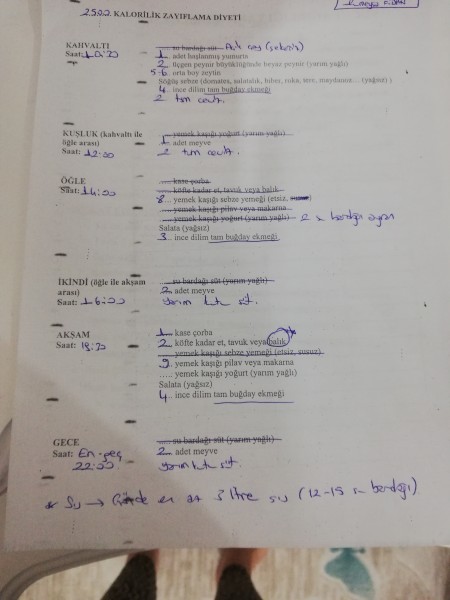 2500 KALORİLİK ZAYIFLAMA DİYETİ
KAHVALTI
Saat: 10:30
su bardağı süt Açık çay (şekersiz)
1 adet haşlanmış yumurta
2 üçgen peynir büyüklüğünde beyaz peynir (yarım yağlı)
5-6 orta boy zeytin
Söğüş sebze (domates, salatalık, biber, roka, tere, maydanoz... (yağsız) )
4 ince dilim tam buğday ekmeği
2 tam ceviz.
KUŞLUK (kahvaltı ile
öğle arası)
Saat: 12:00
yemek kaşığı yoğurt (yarım yağlı)
1 adet meyve
2 tam ceviz.
ÖĞLE
Saat: 14:00
kase çorba
köfte kadar et, tavuk veya balık
8 yemek kaşığı sebze yemeği (etsiz,
yemek kaşığı pilav veya makarna
yemek kaşığı yoğurt (yarım yağlı) 2 su bardağı ayran
Salata (yağsız)
3 ince dilim tam buğday ekmeği
İKİNDİ (öğle ile akşam
arası)
Saat: 16:00
su bardağı süt (yarım yağlı)
2 adet meyve
yarım kutu süt.
AKŞAM
Saat: 19:30
1 kase çorba
2 köfte kadar et, tavuk veya balık
yemek kaşığı sebze yemeği (etsiz, susuz)
9 yemek kaşığı pilav veya makarna
..... yemek kaşığı yoğurt (yarım yağlı)
Salata (yağsız)
4 ince dilim tam buğday ekmeği
GECE
Saat: En geç
22:00
su bardağı süt (yarım yağlı)
2 adet meyve
yarım kutu süt.
* Su → Günde en az 3 litre su (12-15 su bardağı)